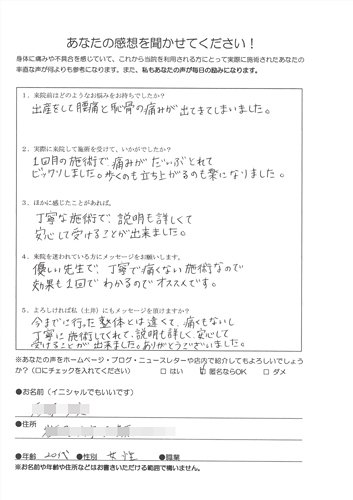 あなたの感想を聞かせてください!
身体に痛みや不具合を感じていて、これから当院を利用される方にとって実際に施術されたあなたの
率直な声が何よりも参考になります。また、私もあなたの声が毎日の励みになります。
1．来院前はどのようなお悩みをお持ちでしたか?
出産をして腰痛と恥骨の痛みが出てきてしまいました。
2．実際に来院して施術を受けて、いかがでしたか?
1回目の施術で痛みがだいぶとれて
ビックリしました。歩くのも立ち上がるのも楽になりました。
3．ほかに感じたことがあれば。
丁寧な施術で、説明も詳しくて
安心して受けることが出来ました。
4．来院を迷われている方にメッセージをお願いします。
優しい先生で、丁寧で痛くない施術なので
効果も1回でわかるのでオススメです。
5．よろしければ私（土井）にもメッセージを頂けますか?
今までに行った整体とは違くて、痛くもないし
丁寧に施術してくれて、説明も詳しく、安心して
受けることが出来ました。ありがとうございました。
※あなたの声をホームページ・ブログ・ニュースレターや店内で紹介してもよろしいでしょう
か?（口にチェックを入れてください） □ はい ☑ 匿名ならOK □ ダメ
●お名前（イニシャルでもいいです）
●住所
●年齢 20代 ●性別 女性 ●職業
※お名前や年齢や住所などはお書きいただける範囲で構いません。